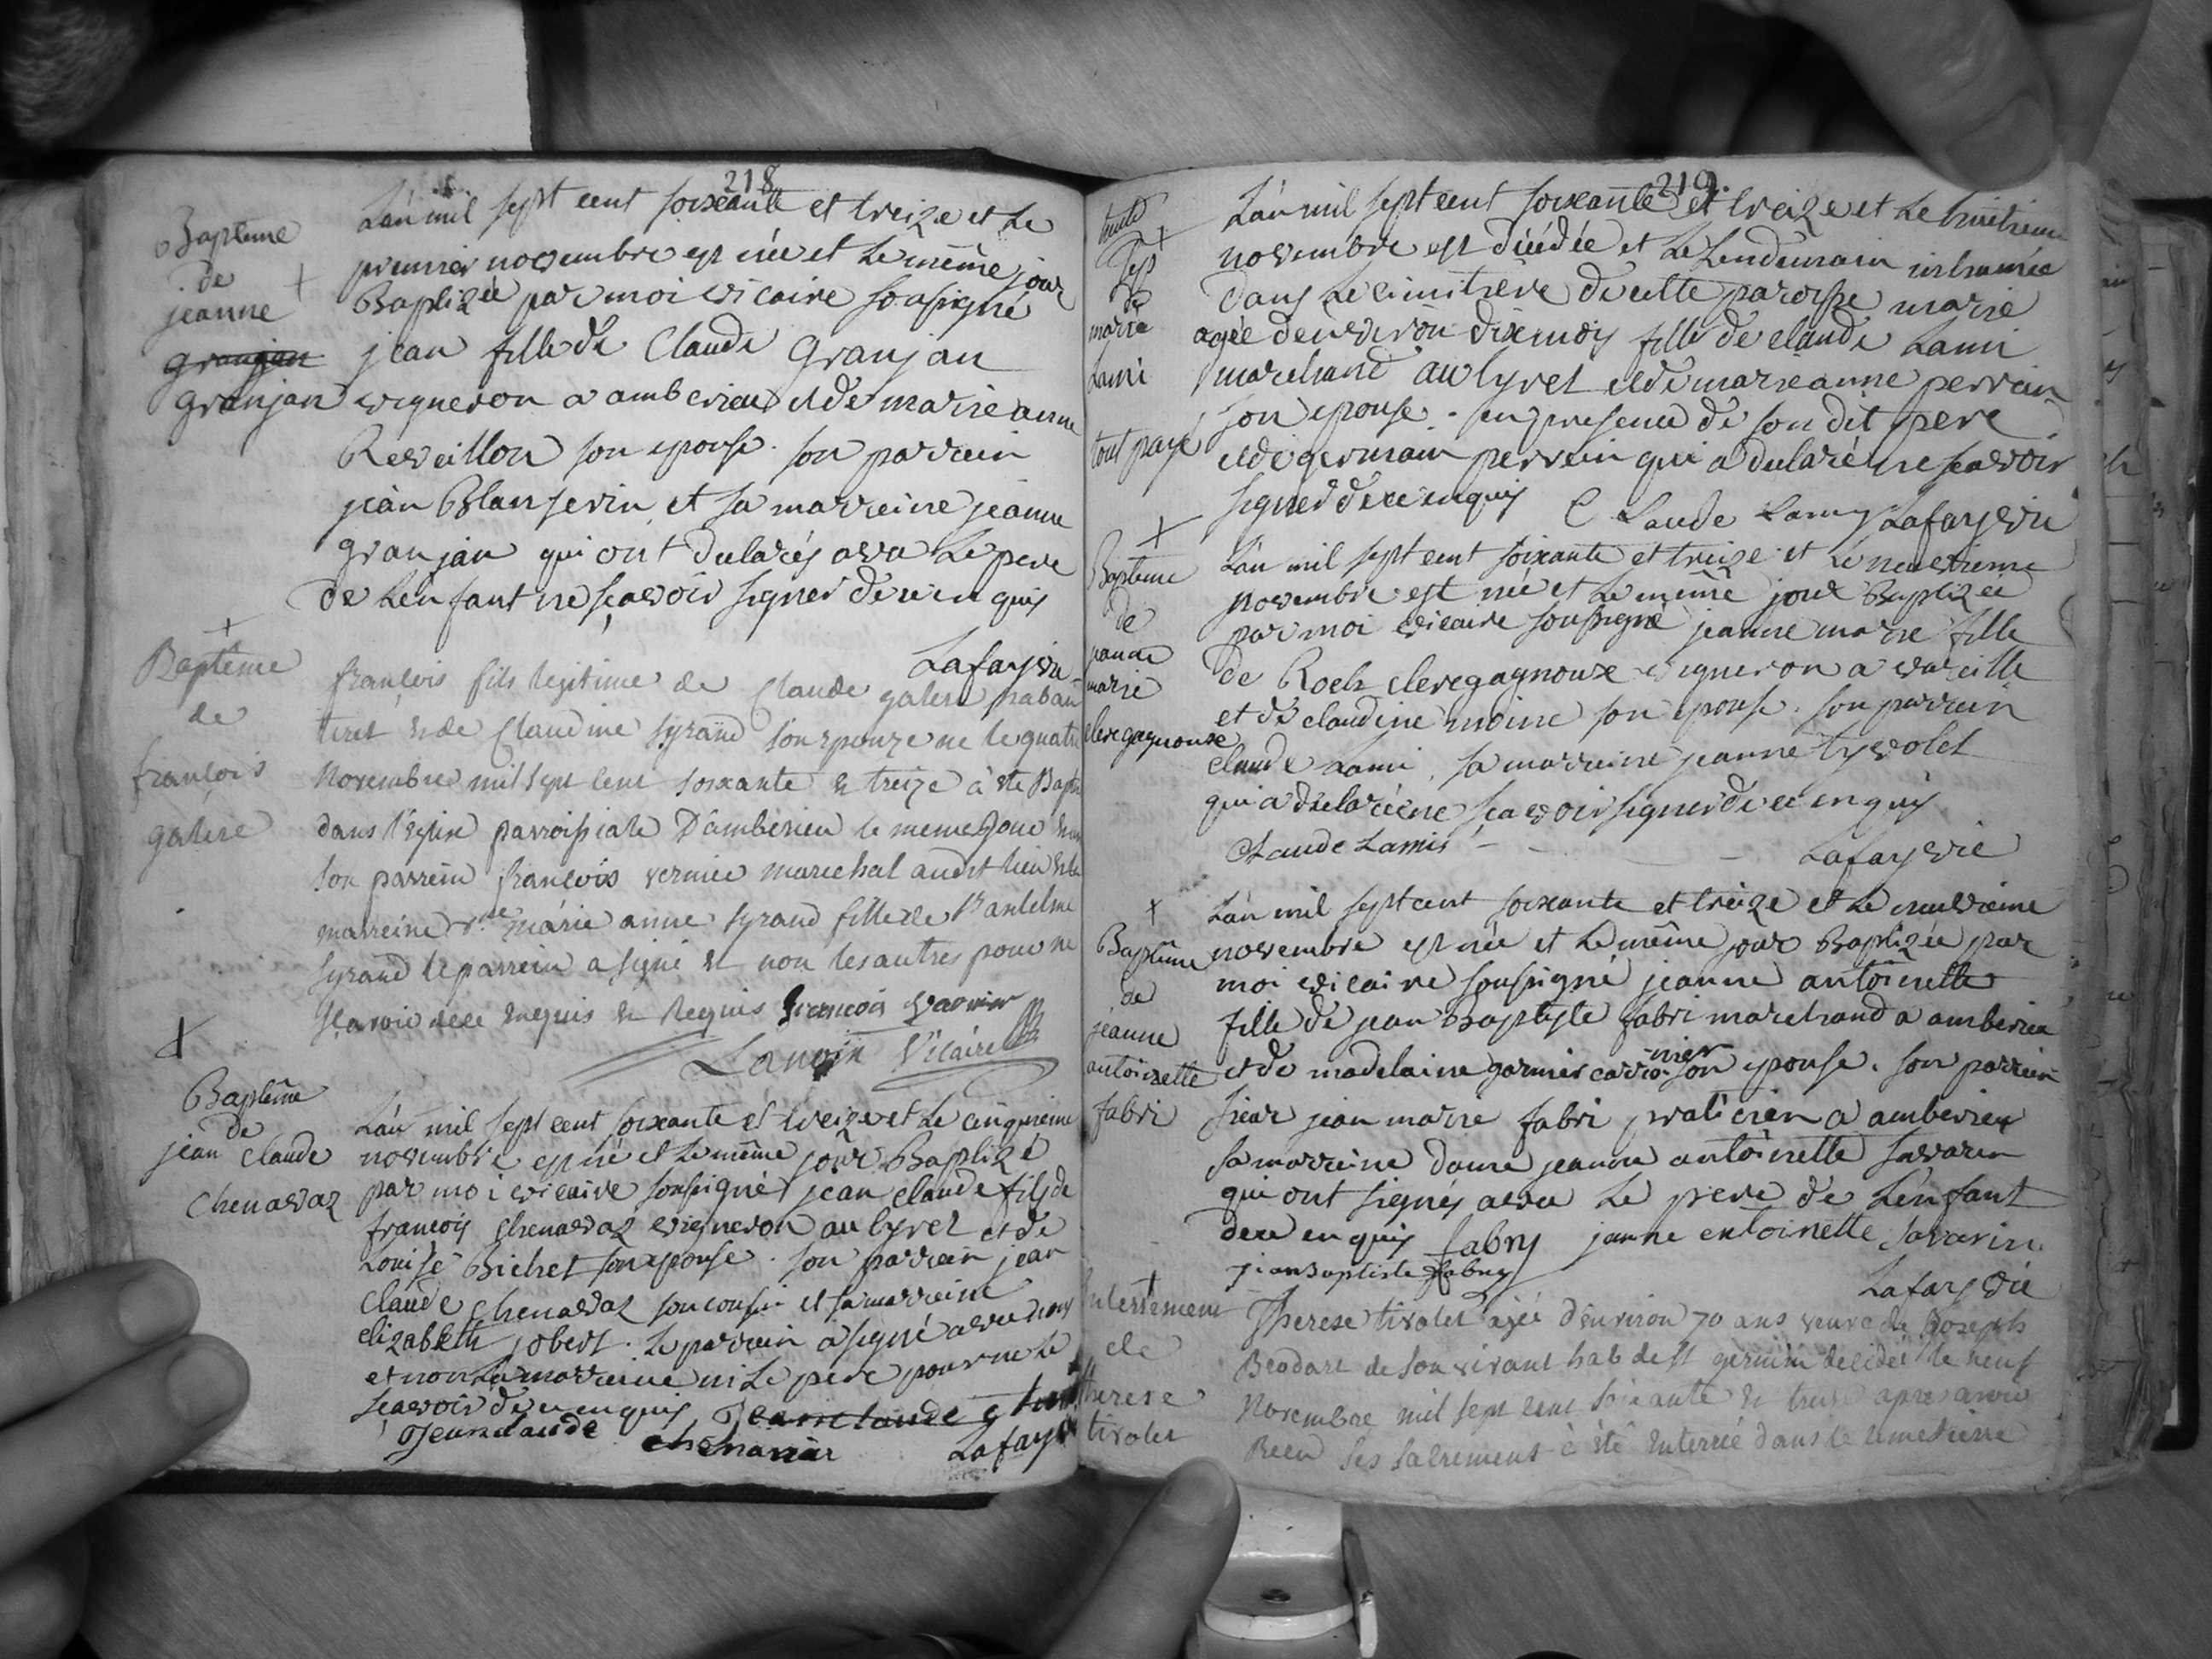 218
Bapteme
de
jeanne
granjan
granjan
L'an mil sept cent soixante et treize et le
premier novembre est née et le même jour
Baptizée par moi vicaire sousigné
jean fille de Claude granjan
vigneron a amberieu et de marie anne
Reveillon son epouse. son parrein
jean Blanjevin et sa marreine jeanne
granjan qui ont declarés avec le pere
de L'enfant ne sçavoir signer de ce enquis
Lafay vic
Baptême
de
francois
galere
françois fils legitime de Claude galere
et de Claudine syrand son epouze ne le quatre
Novembre mil sept cent soixante et treize à ete
dans l'eglise parroissiale D'amberieu le meme jour
son parrein françois vernier marechal audit lieu
marreine marie anne syrand fille de antelme
syrand le parrein a signé et non les autres pour ne
sçavoir de ce enquis et Requis francois varnier
Lanoin Vicaire
Baptême
de
jean Claude
Chenavaz
L'an mil sept cent soixante et treize et le cinquieme
novembre est né et le même jour Baptizé
par moi vicaire sousigné jean claude fils de
francois chenavaz vigneron au tyret et de
Louise Bichet son epouse. son parrein jean
Claude chenavaz son cousin et sa marreine
elizabeth jobert. le parrein a signé avec nous
et non la marreine ni le pere pour ne le
sçavoir de ce enquis Jean claude
Jean claude chenavar Lafay
219.
de
marie
Lami
tout payé
L'an mil sept cent soixante et treize et le huitieme
novembre est décédée et le Lendemain inhumée
dans le cimitiere de cette paroisse marie
agée d'environ dix mois fille de claude Lami
marchand au tyret et de marie anne perrein
son epouse. en presence de son dit pere
et de germain perrein qui a declaré ne sçavoir
signer de ce enquis C Laude Lamy Lafay vic
Bapteme
de
jeanne
marie
cleregagnoux
L'an mil sept cent soixante et treize et le neuvieme
novembre est née et le même jour Baptizée
par moi vicaire sousigné jeanne marie fille
de Roch cleregagnoux vigneron a vareille
et de claudine moine son epouse. son parrein
claude Lami, sa marreine jeanne tyvolet
qui a declarée ne sçavoir signer de ce enquis
Claude Lamis
Lafay vic
Baptême
de
jeanne
antoinette
fabri
L'an mil sept cent soixante et treize et le neuvieme
novembre est née et le même jour Baptizée par
moi vicaire sousigné jeanne antoinette
fille de jean Baptiste fabri marchand a amberieu
et de madelaine garnier son epouse. son parrein
sieur jean marie fabri praticien a amberieu
sa marreine dame jeanne antoinette savarin
qui ont signés avec le pere de L'enfant
de ce enquis fabry janne entoinette savarin
jean Baptiste fabry
Lafay vic
Enterrement
de
therese
tivolet
Therese tivolet agée d'environ 70 ans veuve de Joseph
Beodart de son vivant hab de st germain decedée le neuf
Novembre mil sept cent soixante et treize apres avoir
Receu ses sacrements à été enterrée dans le cimetierre